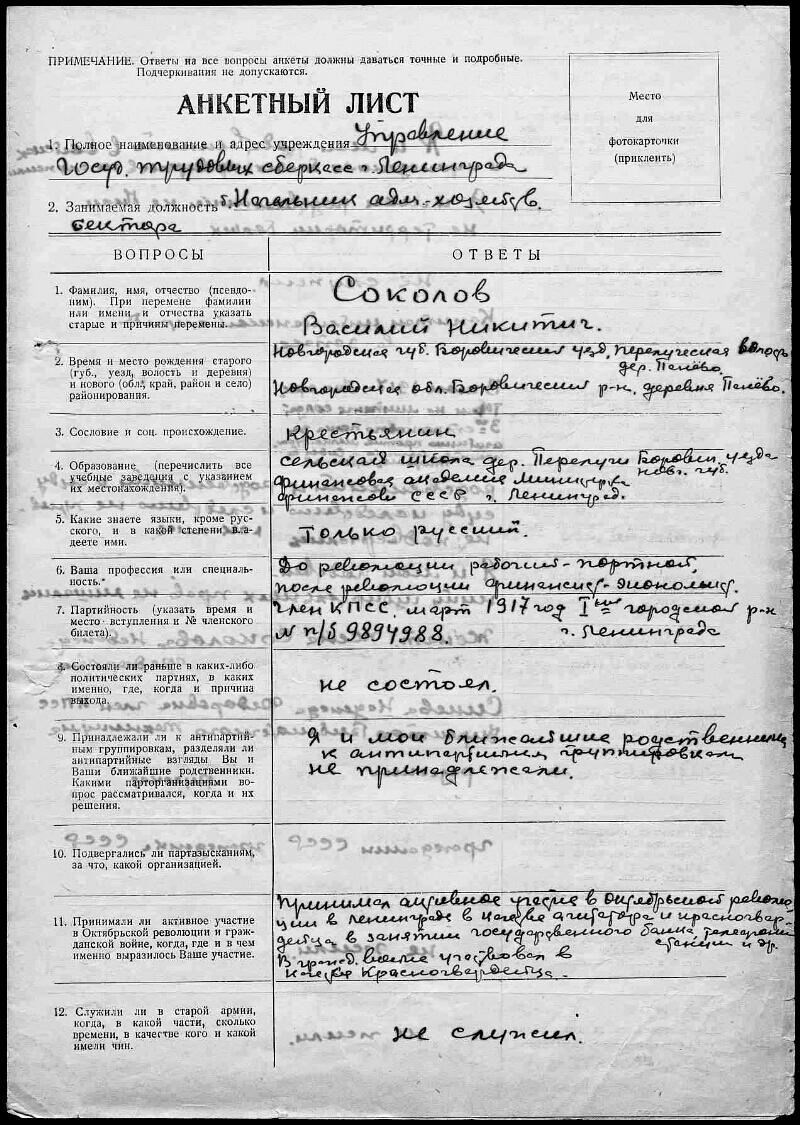 ПРИМЕЧАНИЕ. Ответы на все вопросы анкеты должны даваться точные и подробные.
Подчеркивания не допускаются.
АНКЕТНЫЙ ЛИСТ
Место
для
фотокарточки
(приклеить)
1. Полное наименование и адрес учреждения Управление
Госуд. трудовых сберкасс г. Ленинграда
2. Занимаемая должность б. Начальник адм.-хозяйств.
сектора
ВОПРОСЫ
ОТВЕТЫ
1. Фамилия, имя, отчество (псевдо-
ним). При перемене фамилии
или имени и отчества указать
старые и причины перемены.
Соколов
Василий Никитич.
2. Время и место рождения старого
(губ., уезд, волость и деревня)
и нового (обл., край, район и село)
районирования.
Новгородская губ. Боровический уезд, Перелучская волость
дер. Панёво.
Новгородская обл. Боровический р-н. деревня Панёво.
3. Сословие и соц. происхождение.
Крестьянин
4. Образование (перечислить все
учебные заведения с указанием
их местонахождения).
сельская школа дер. Перелучи Борович. уезда
Новг. губ.
финансовая академия Министерства
финансов СССР г. Ленинград.
5. Какие знаете языки, кроме рус-
ского, и в какой степени вла-
деете ими.
Только русский.
6. Ваша профессия или специаль-
ность.
До революции рабочий-портной,
после революции финансист-экономист.
7. Партийность (указать время и
место вступления и № членского
билета).
Член КПСС. март 1917 год Iый городской р-н
N п/б 9894988. г. Ленинграда
8. Состояли ли раньше в каких-либо
политических партиях, в каких
именно, где, когда и причина
выхода.
не состоял.
9. Принадлежали ли к антипартий-
ным группировкам, разделяли ли
антипартийные взгляды Вы и
Ваши ближайшие родственники.
Какими парторганизациями во-
прос рассматривался, когда и их
решения.
Я и мои ближайшие родственники
к антипартийным группировкам
не принадлежали.
10. Подвергались ли партвзысканиям,
за что, какой организацией.
11. Принимали ли активное участие
в Октябрьской революции и граж-
данской войне, когда, где и в чем
именно выразилось Ваше участие.
Принимал активное участие в Октябрьской револю-
ции в Ленинграде в качестве агитатора и красногвар-
дейца в занятии государственного банка, телеграфной
станции и др.
В гражд. войне участвовал в
качестве Красногвардейца.
12. Служили ли в старой армии,
когда, в какой части, сколько
времени, в качестве кого и какой
имели чин.
не служил.